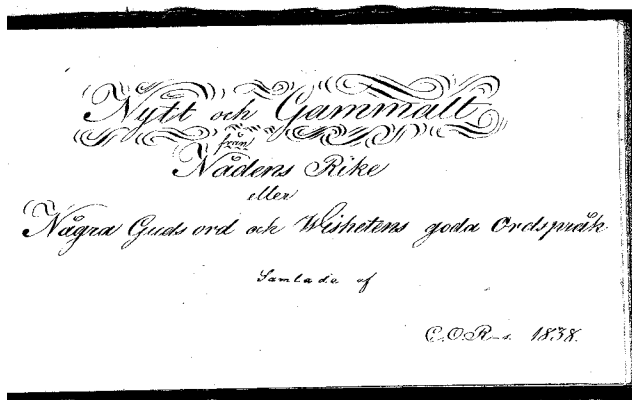 Nytt och Gammalt
från
Nådens Rike
eller
Några Guds ord och Wishetens goda Ordspråk
Samlada af
C.O.R-s. 1838.